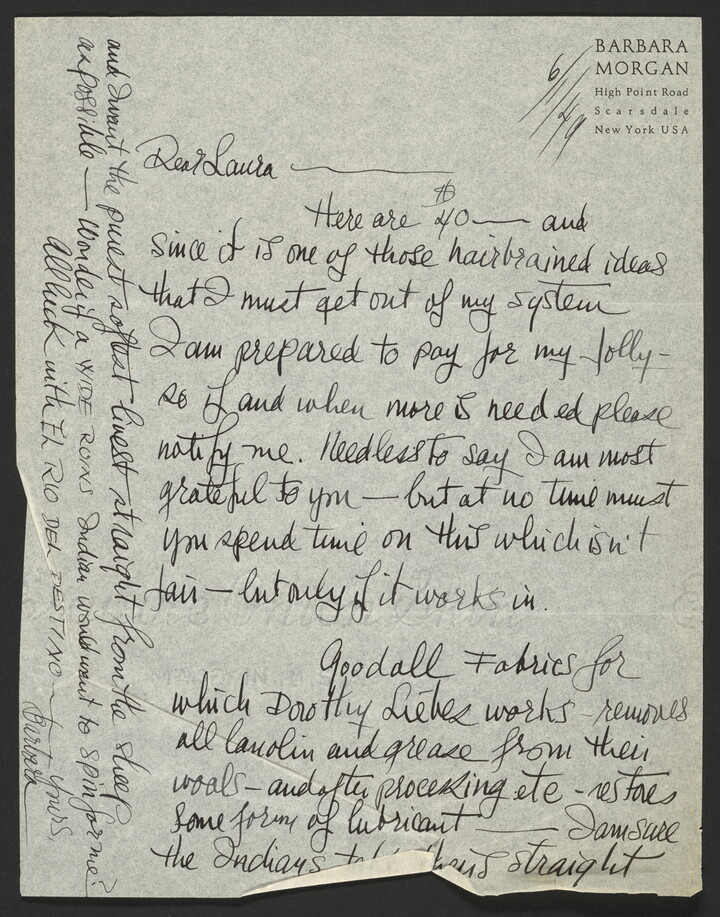 BARBARA
MORGAN
High Point Road
Scarsdale
New York USA
6/1/49
Dear Laura —
Here are $40 — and
since it is one of those hairbrained ideas
that I must get out of my system
I am prepared to pay for my folly -
so if and when more is needed please
notify me. Needless to say I am most
grateful to you — but at no time must
you spend time on this which isn't
fair — but only if it works in.
Goodall Fabrics for
which Dorothy Liebes works - removes
all lanolin and grease from their
wools - and after processing etc - restores
some form of lubricant — I am sure
the Indians theirs straight
and I want the purest softest livest straight from the sheep
as possible — Wonder if a WIDE RUINS Indian would want to spin for me?
All luck with EL RIO DEL DESTINO — Yours,
Barbara